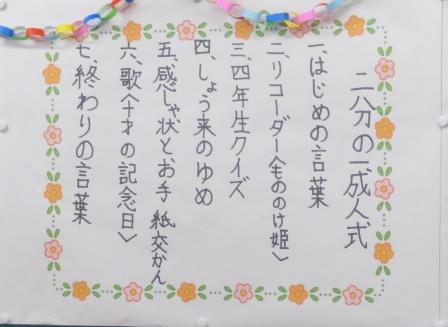 二分の一成人式
一、はじめの言葉
二、リコーダー〈もののけ姫〉
三、四年生クイズ
四、しょう来のゆめ
五、感しゃ状と、お手紙交かん
六、歌〈十才の記念日〉
七、終わりの言葉